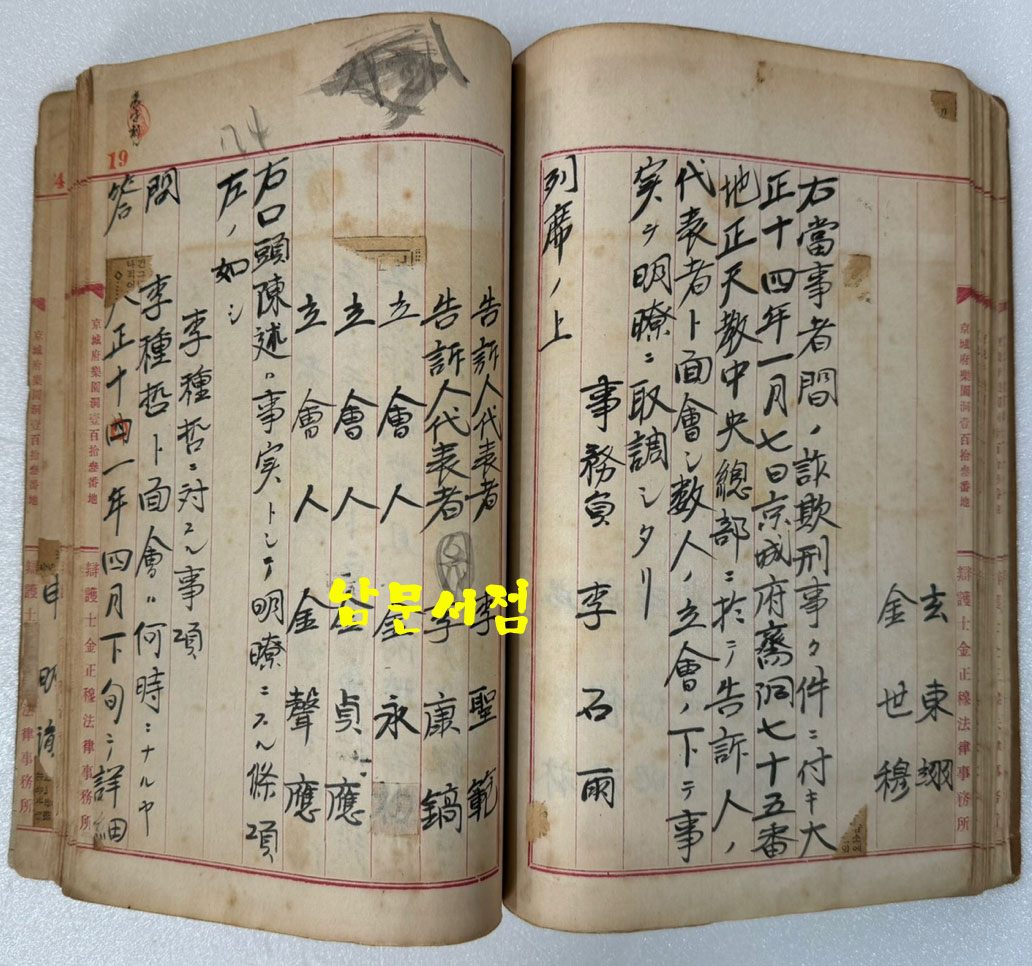 玄東翊
金世穆
右當事者間ノ詐欺刑事々件ニ付キ大
正十四年一月七日京城府齋洞七十五番
地正天教中央總部ニ於テ告訴人ノ
代表者ト面會シ数人ノ立會ノ下ニテ事
実ヲ明瞭ニ取調シタリ
事務員 李石雨
列席ノ上
告訴人代表者 李聖範
告訴人代表者 李康鎬
立會人 金永
立會人 金貞應
立會人 金聲應
右口頭陳述ハ事実トシテ明瞭ニスル條項
左ノ如シ
李種哲ニ対スル事項
問 李種哲ト面會ハ何時ニナルヤ
答 大正十四一年四月下旬ニテ詳細
京城府樂園洞壹百拾叁番地 辯護士金正穆法律事務所
京城府樂園洞壹百拾叁番地 辯護士金正穆法律事務所
京城府樂園洞壹百拾叁番地 律事務所
19
4
남문서점